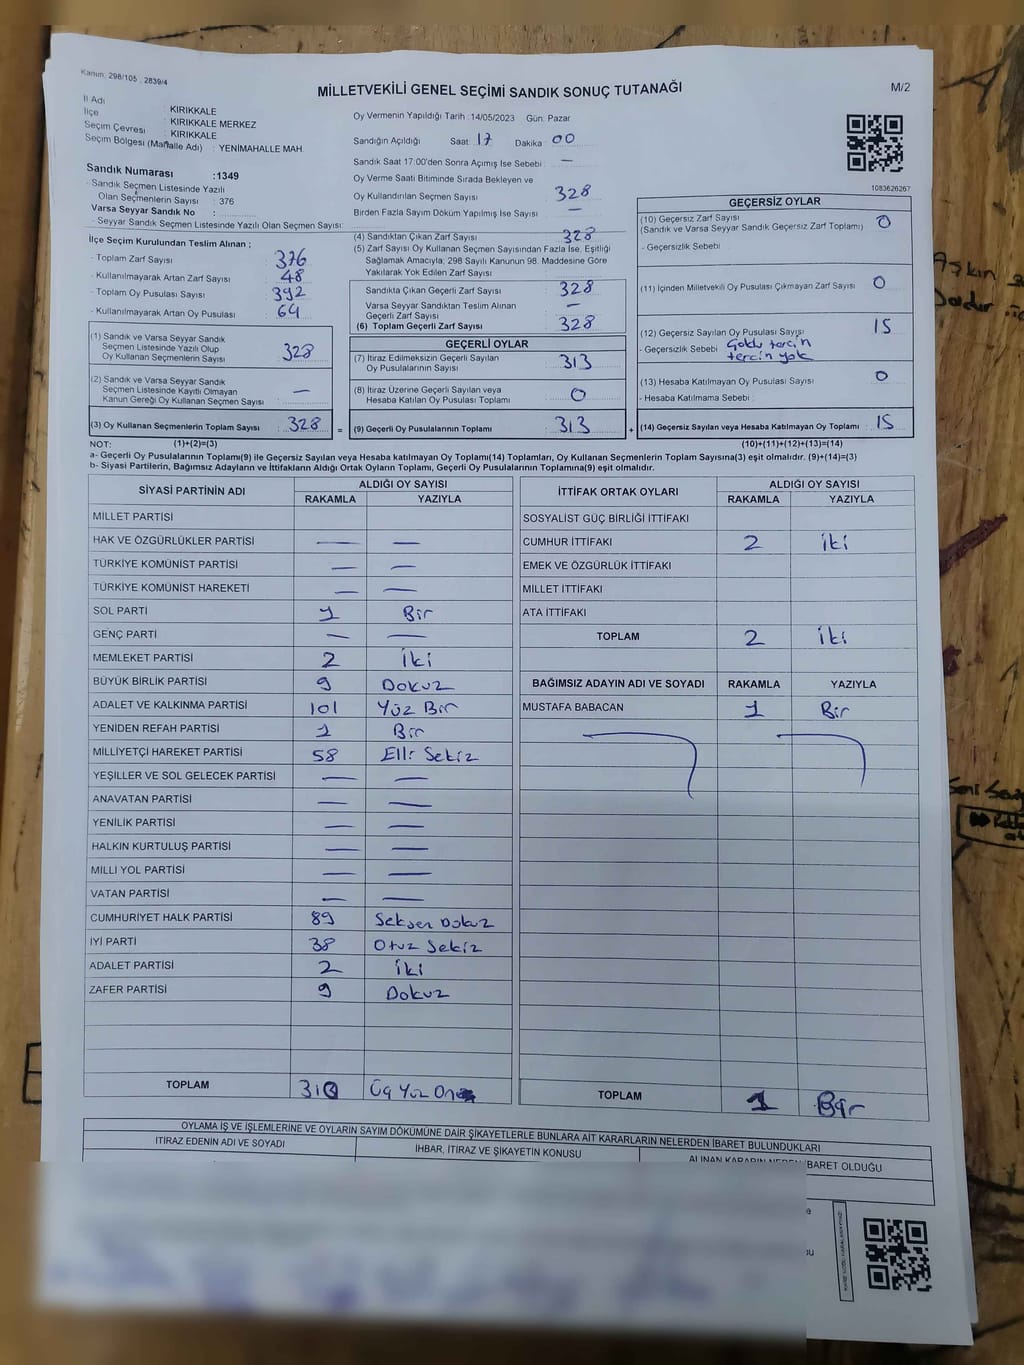 Kanun: 298/105 , 2839/4
MİLLETVEKİLİ GENEL SEÇİMİ SANDIK SONUÇ TUTANAĞI
M/2
İl Adı : KIRIKKALE
İlçe : KIRIKKALE MERKEZ
Seçim Çevresi : KIRIKKALE
Seçim Bölgesi (Mahalle Adı) : YENİMAHALLE MAH.
Sandık Numarası :1349
- Sandık Seçmen Listesinde Yazılı
Olan Seçmenlerin Sayısı : 376
Varsa Seyyar Sandık No :
- Seyyar Sandık Seçmen Listesinde Yazılı Olan Seçmen Sayısı:
İlçe Seçim Kurulundan Teslim Alınan ;
- Toplam Zarf Sayısı : 376
- Kullanılmayarak Artan Zarf Sayısı : 48
- Toplam Oy Pusulası Sayısı : 392
- Kullanılmayarak Artan Oy Pusulası : 64
(1) Sandık ve Varsa Seyyar Sandık
Seçmen Listesinde Yazılı Olup
Oy Kullanan Seçmenlerin Sayısı : 328
(2) Sandık ve Varsa Seyyar Sandık
Seçmen Listesinde Kayıtlı Olmayan
Kanun Gereği Oy Kullanan Seçmen Sayısı : —
(3) Oy Kullanan Seçmenlerin Toplam Sayısı : 328 =
Oy Vermenin Yapıldığı Tarih :14/05/2023 Gün: Pazar
Sandığın Açıldığı Saat : 17 Dakika : 00
Sandık Saat 17:00'den Sonra Açımış İse Sebebi : —
Oy Verme Saati Bitiminde Sırada Bekleyen ve
Oy Kullandırılan Seçmen Sayısı : 328
Birden Fazla Sayım Döküm Yapılmış İse Sayısı : —
(4) Sandıktan Çıkan Zarf Sayısı : 328
(5) Zarf Sayısı Oy Kullanan Seçmen Sayısından Fazla İse, Eşitliği
Sağlamak Amacıyla; 298 Sayılı Kanunun 98. Maddesine Göre
Yakılarak Yok Edilen Zarf Sayısı :
Sandıkta Çıkan Geçerli Zarf Sayısı : 328
Varsa Seyyar Sandıktan Teslim Alınan
Geçerli Zarf Sayısı : —
(6) Toplam Geçerli Zarf Sayısı : 328
GEÇERLİ OYLAR
(7) İtiraz Edilmeksizin Geçerli Sayılan
Oy Pusulalarının Sayısı : 313
(8) İtiraz Üzerine Geçerli Sayılan veya
Hesaba Katılan Oy Pusulası Toplamı : 0
(9) Geçerli Oy Pusulalarının Toplamı : 313 +
1083626267
GEÇERSİZ OYLAR
(10) Geçersiz Zarf Sayısı : 0
(Sandık ve Varsa Seyyar Sandık Geçersiz Zarf Toplamı)
- Geçersizlik Sebebi :
(11) İçinden Milletvekili Oy Pusulası Çıkmayan Zarf Sayısı : 0
(12) Geçersiz Sayılan Oy Pusulası Sayısı : 15
- Geçersizlik Sebebi : Çoklu tercih
tercih yok
(13) Hesaba Katılmayan Oy Pusulası Sayısı : 0
- Hesaba Katılmama Sebebi :
(14) Geçersiz Sayılan veya Hesaba Katılmayan Oy Toplamı : 15
NOT: (1)+(2)=(3) (10)+(11)+(12)+(13)=(14)
a- Geçerli Oy Pusulasının Toplamı(9) ile Geçersiz Sayılan veya Hesaba katılmayan Oy Toplamı(14) Toplamları, Oy Kullanan Seçmenlerin Toplam Sayısına(3) eşit olmalıdır. (9)+(14)=(3)
b- Siyasi Partilerin, Bağımsız Adayların ve İttifakların Aldığı Ortak Oyların Toplamı, Geçerli Oy Pusulalarının Toplamına(9) eşit olmalıdır.
SİYASİ PARTİNİN ADI ALDIĞI OY SAYISI
RAKAMLA YAZIYLA
MİLLET PARTİSİ
HAK VE ÖZGÜRLÜKLER PARTİSİ — —
TÜRKİYE KOMÜNİST PARTİSİ — —
TÜRKİYE KOMÜNİST HAREKETİ — —
SOL PARTİ 1 Bir
GENÇ PARTİ — —
MEMLEKET PARTİSİ 2 İki
BÜYÜK BİRLİK PARTİSİ 9 Dokuz
ADALET VE KALKINMA PARTİSİ 101 Yüz Bir
YENİDEN REFAH PARTİSİ 1 Bir
MİLLİYETÇİ HAREKET PARTİSİ 58 Elli Sekiz
YEŞİLLER VE SOL GELECEK PARTİSİ — —
ANAVATAN PARTİSİ — —
YENİLİK PARTİSİ — —
HALKIN KURTULUŞ PARTİSİ — —
MİLLİ YOL PARTİSİ — —
VATAN PARTİSİ — —
CUMHURİYET HALK PARTİSİ 89 Seksen Dokuz
İYİ PARTİ 38 Otuz Sekiz
ADALET PARTİSİ 2 İki
ZAFER PARTİSİ 9 Dokuz
TOPLAM Üç Yüz On
İTTİFAK ORTAK OYLARI ALDIĞI OY SAYISI
RAKAMLA YAZIYLA
SOSYALİST GÜÇ BİRLİĞİ İTTİFAKI
CUMHUR İTTİFAKI 2 İki
EMEK VE ÖZGÜRLÜK İTTİFAKI
MİLLET İTTİFAKI
ATA İTTİFAKI
TOPLAM 2 İki
BAĞIMSIZ ADAYIN ADI VE SOYADI RAKAMLA YAZIYLA
MUSTAFA BABACAN 1 Bir
TOPLAM 1 Bir
OYLAMA İŞ VE İŞLEMLERİNE VE OYLARIN SAYIM DÖKÜMÜNE DAİR ŞİKAYETLERLE BUNLARA AİT KARARLARIN NELERDEN İBARET BULUNDUKLARI
İTİRAZ EDENİN ADI VE SOYADI İHBAR, İTİRAZ VE ŞİKAYETİN KONUSU ALINAN KARARIN NEDEN İBARET OLDUĞU
Aşkın